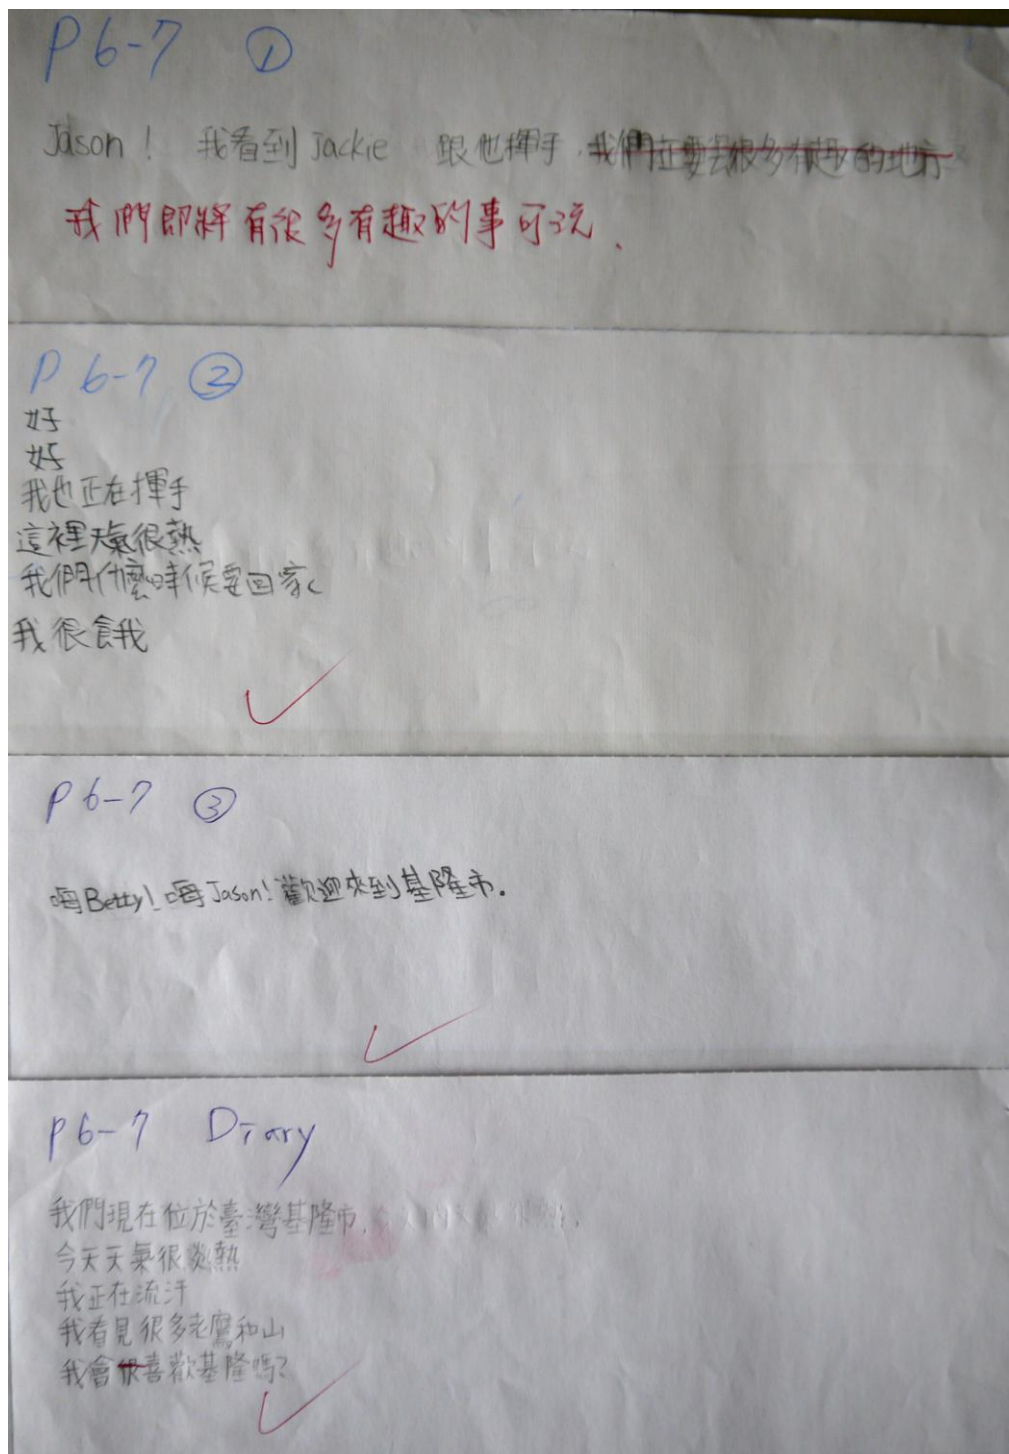 P 6-7 ①
Jason! 我看到 Jackie 跟他揮手. 我們正要去很多有趣的地方
我們即將有很多有趣的事可玩.
P 6-7 ②
好
好
我也正在揮手
這裡天氣很熱
我們什麼時候要回家
我很餓
P 6-7 ③
嗨Betty! 嗨Jason! 歡迎來到基隆市.
P 6-7 Diary
我們現在位於臺灣基隆市.
今天天氣很炎熱
我正在流汗
我看見很多老鷹和山
我會很喜歡基隆嗎?